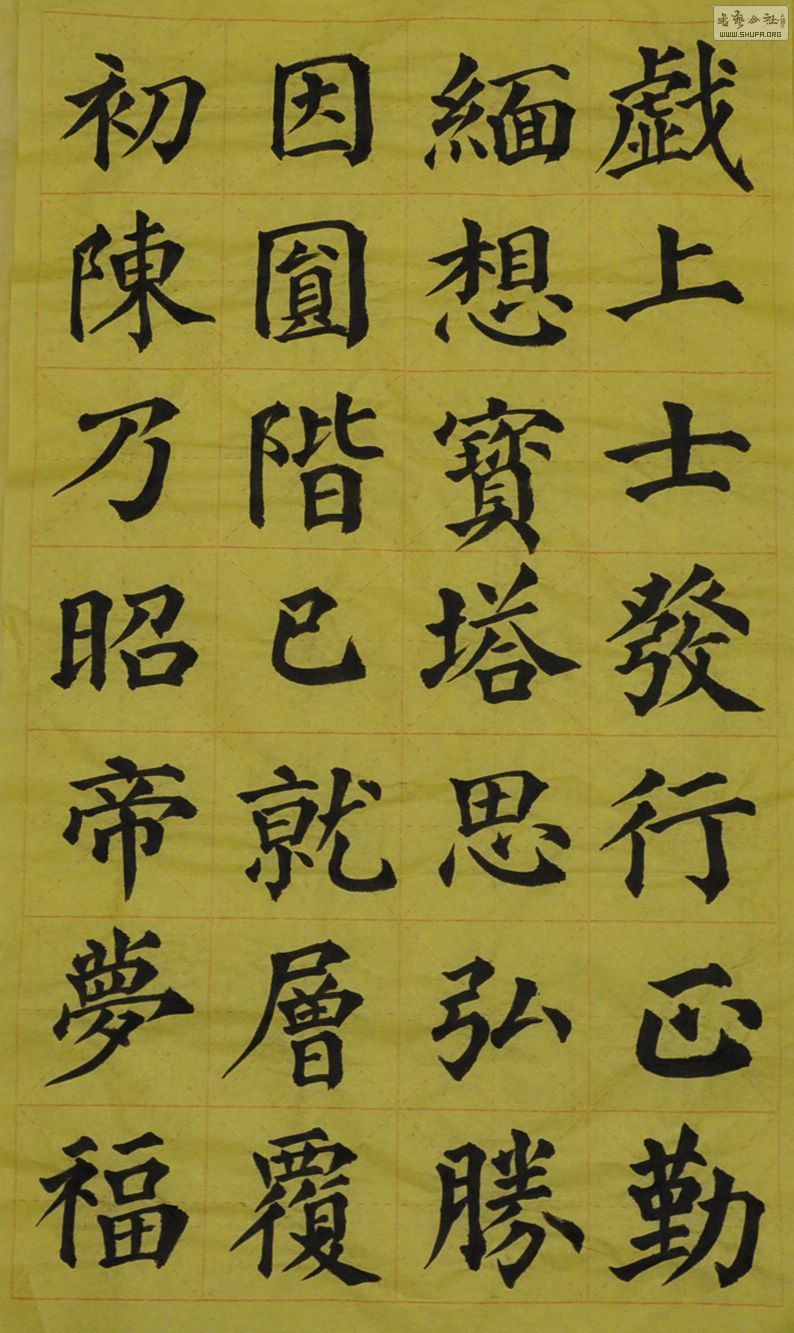 戯上士發行正勤
緬想寶塔思弘勝
因圓階已就層覆
初陳乃昭帝夢福
書藝公社
WWW.SHUFA.ORG